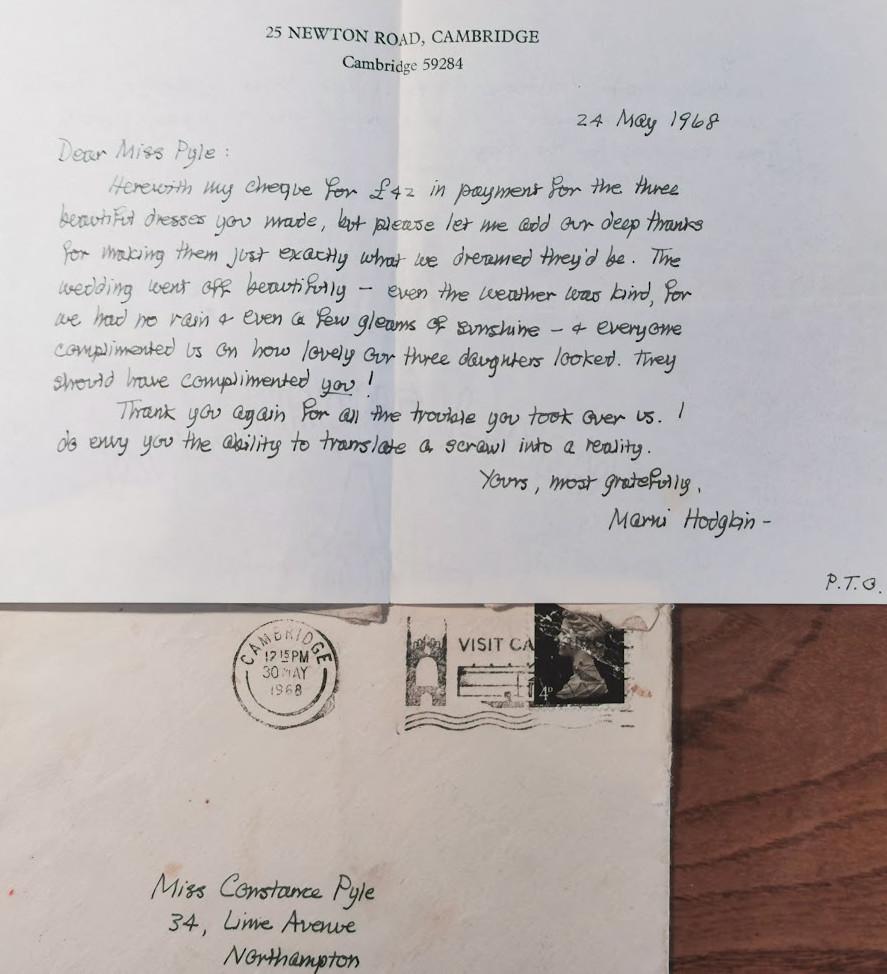 25 NEWTON ROAD, CAMBRIDGE
Cambridge 59284
24 May 1968
Dear Miss Pyle:
Herewith my cheque for £42 in payment for the three
beautiful dresses you made, but please let me add our deep thanks
for making them just exactly what we dreamed they'd be. The
wedding went off beautifully – even the weather was kind, for
we had no rain & even a few gleams of sunshine – & everyone
complimented us on how lovely our three daughters looked. They
should have complimented you!
Thank you again for all the trouble you took over us. I
do envy you the ability to translate a scrawl into a reality.
Yours, most gratefully,
Marni Hodgkin –
P.T.O.
CAMBRIDGE
12 15 PM
30 MAY
1968
VISIT CA
4D
Miss Constance Pyle
34, Lime Avenue
Northampton